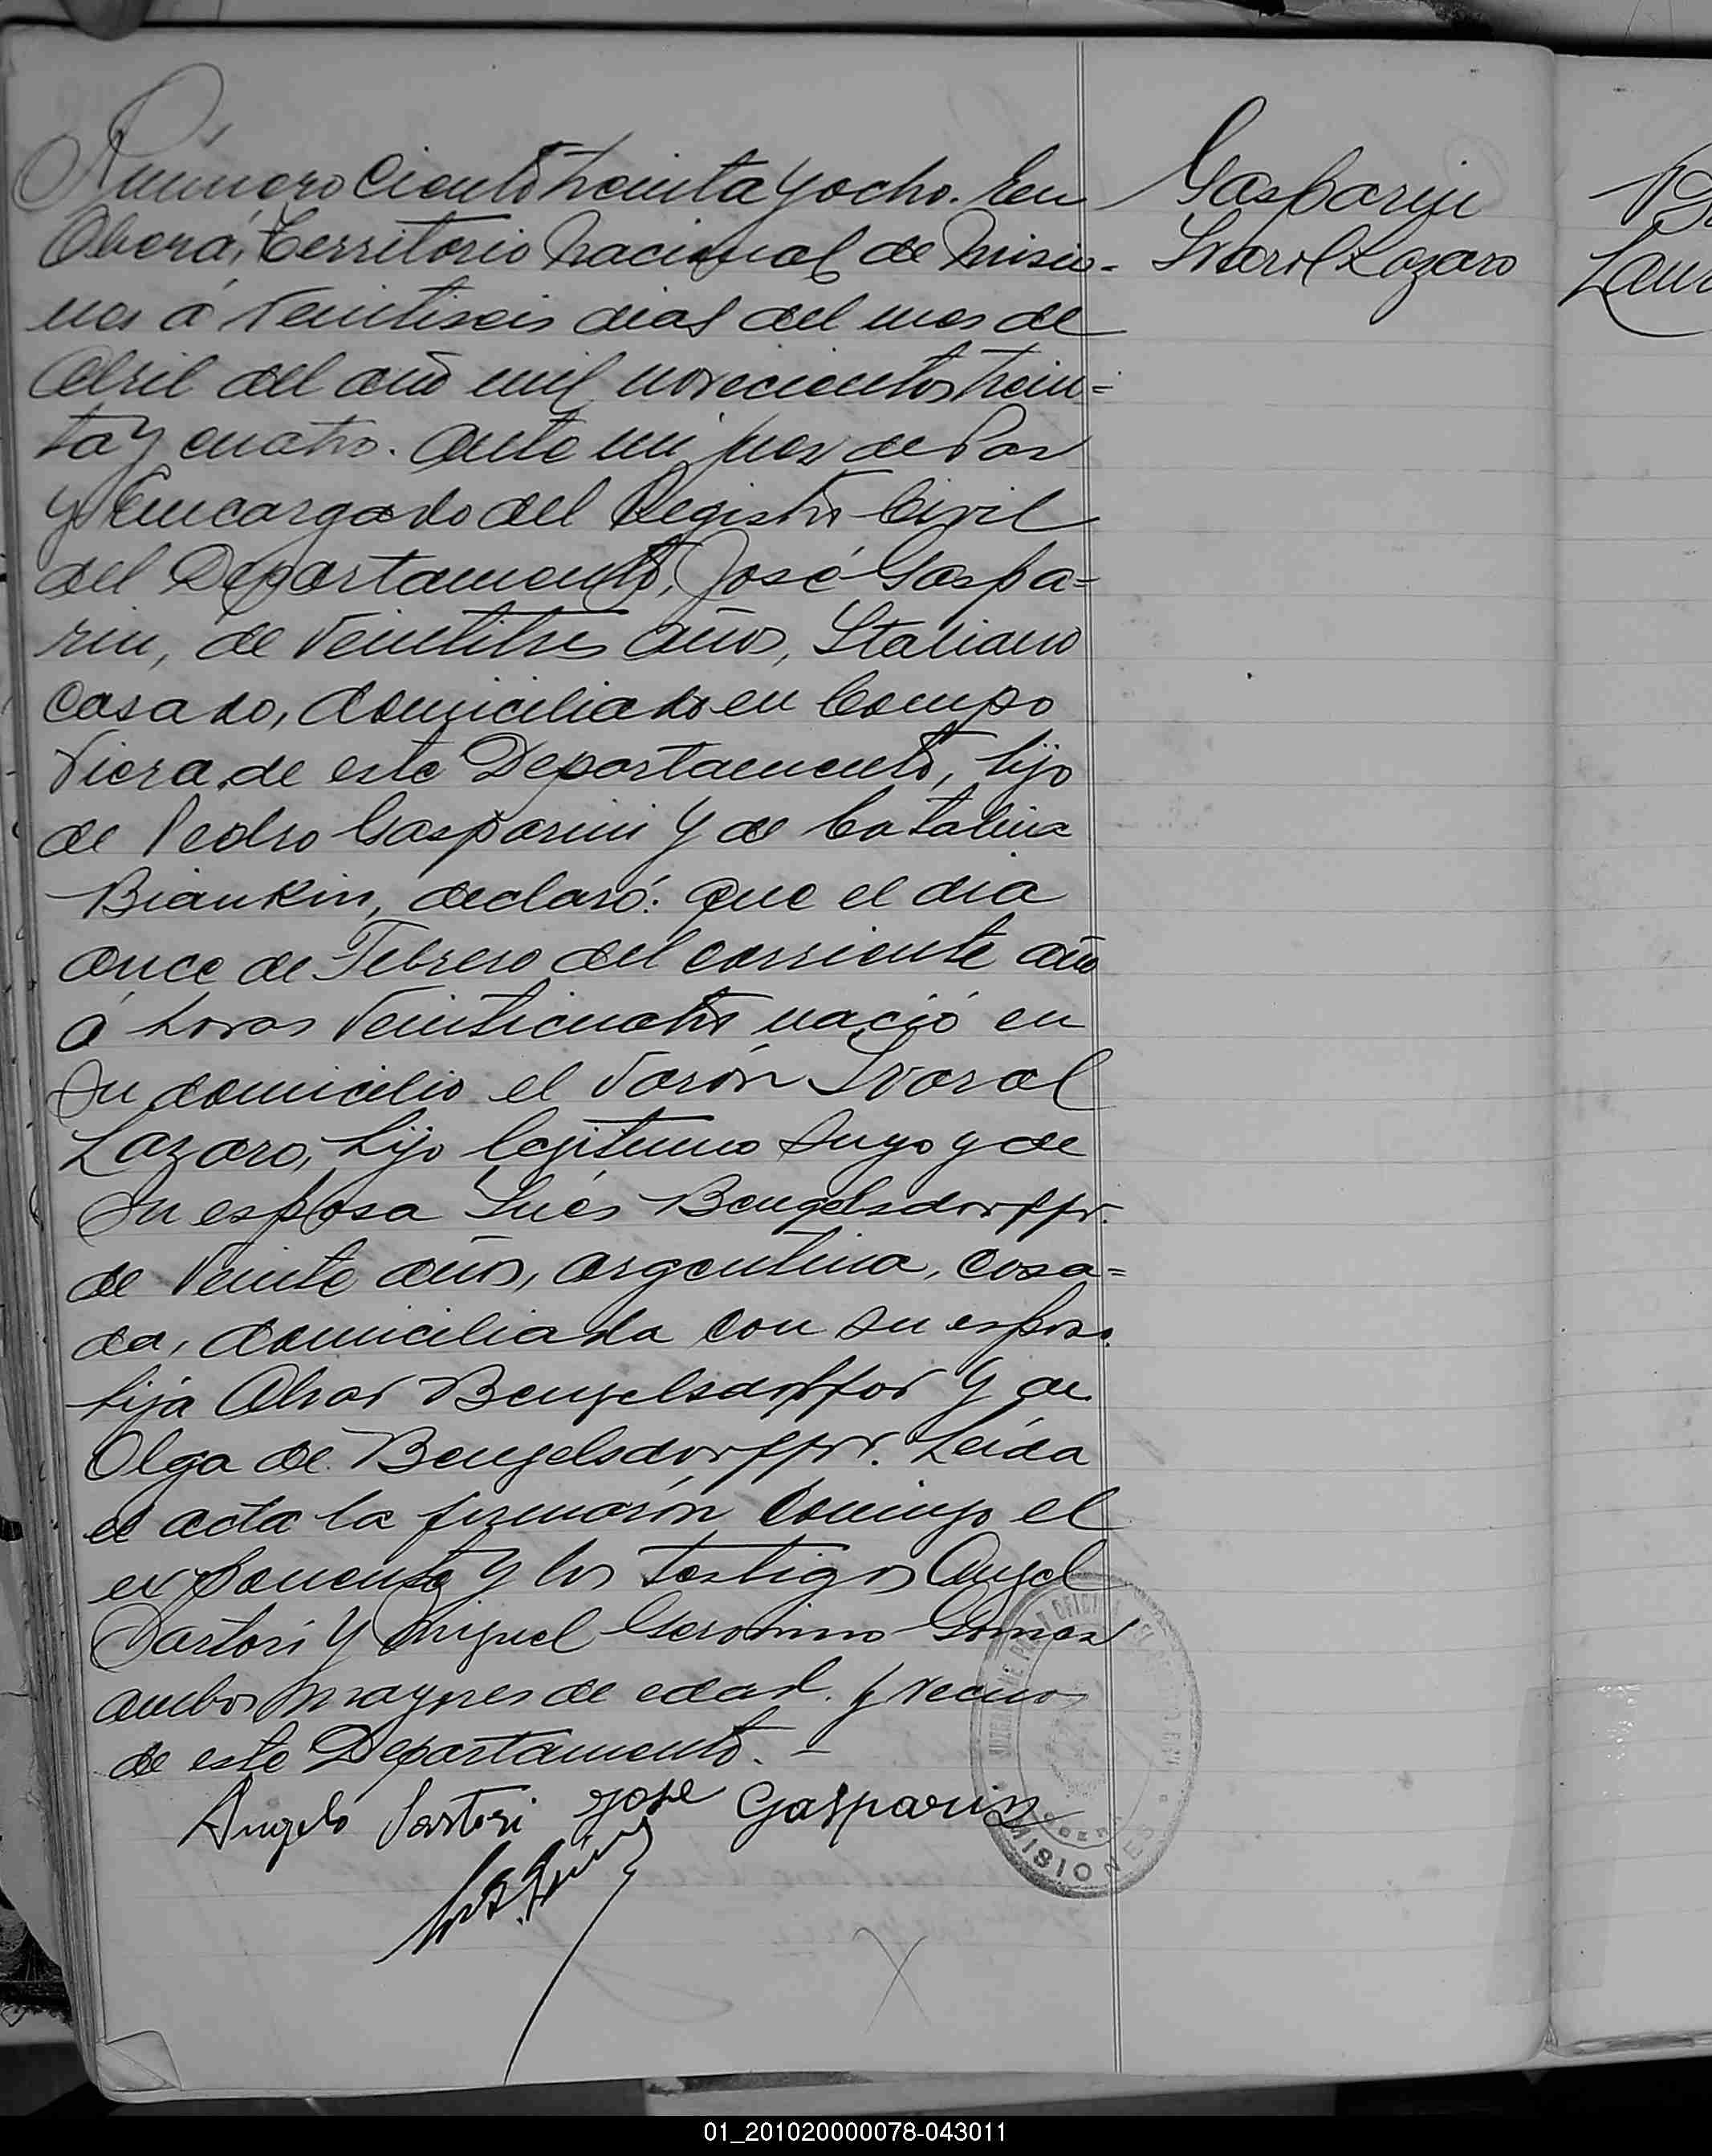 Número Ciento treinta y ocho. En
Oberá, Territorio Nacional de Misio-
nes á veintiseis dias del mes de
Abril del año mil novecientos trein=
ta y cuatro. Ante mi Juez de Paz
y Encargado del Registro Civil
del Departamento, José Gaspa=
rin, de veintitres años, Italiano
Casado, domiciliado en Campo
Viera, de este Departamento, hijo
de Pedro Gasparini y de Catalina
Biankin, declaró: que el dia
once de Febrero del corriente año
á horas veinticuatro nació en
Su domicilio el varón Ivarol
Lazaro, hijo legitimo suyo y de
Su esposa Inés Bengelsdorffor.
de veinte años, argentina, casa=
da, domiciliada con su esposo.
hija Alvar Bengelsdorffor y de
Olga de Bengelsdorffor. Leida
el acta la firmarón conmigo el
exponente y los testigos Angel
Sartori y Miguel Geronimo Gomez
ambos mayores de edad. y vecinos
de este Departamento. -
Angelo Sartori José Gasparin
Gasparin
Ivarol Lazaro
MISIONES
01_201020000078-043011